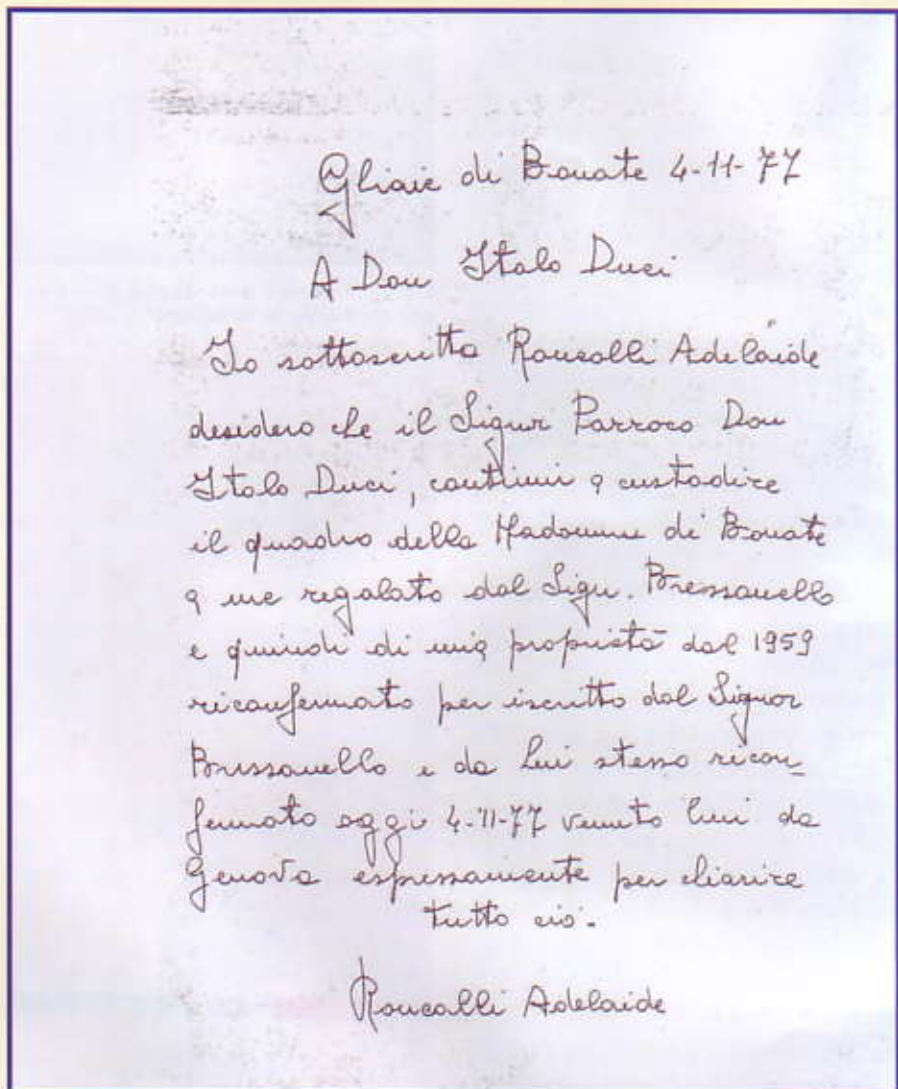 Ghiaie di Bonate 4-11-77
A Don Italo Duci
Io sottoscritta Roncalli Adelaide
desidero che il Signor Parroco Don
Italo Duci, continui a custodire
il quadro della Madonna di Bonate
a me regalato dal Sign. Bressanello
e quindi di mia proprietà dal 1959
riconfermato per iscritto dal Signor
Bressanello e da lui stesso ricon-
fermato oggi 4-11-77 venuto lui da
Genova espressamente per chiarire
tutto ciò.
Roncalli Adelaide